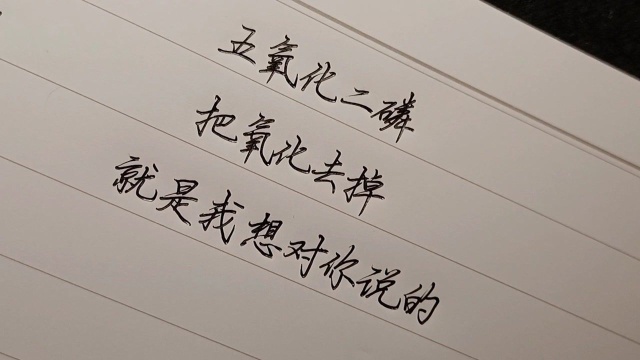 五氧化二磷
把氧化去掉
就是我想对你说的